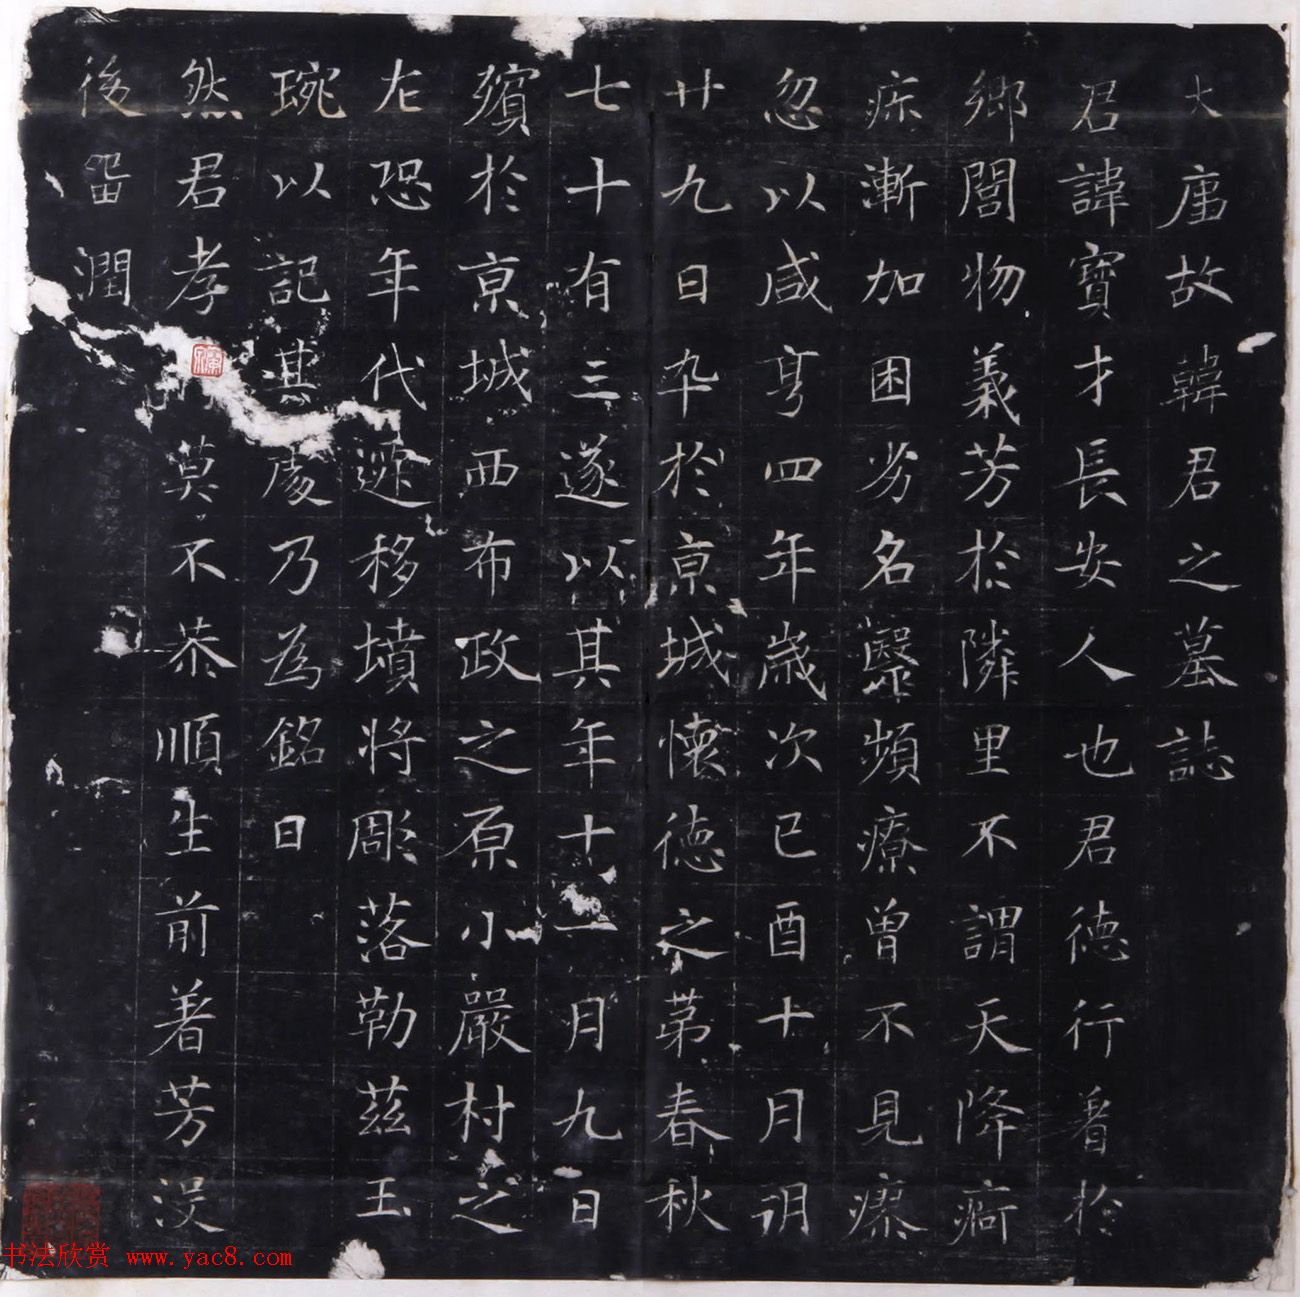 大唐故韓君之墓誌
君諱寶才長安人也君德行著於
鄉閭物義芳於隣里不謂天降痾
瘵漸加困劣名毉頻療曾不見瘳
忽以咸亨四年歲次己酉十月朔
廿九日卒於京城懷德之第春秋
七十有三遂以其年十一月九日
殯於京城西布政之原小嚴村之
左恐年代遞移墳將彫落勒茲玉
琬以記其處乃為銘曰
然君孝莫不恭順生前著芳没
後留潤
书法欣赏 www.yac8.com